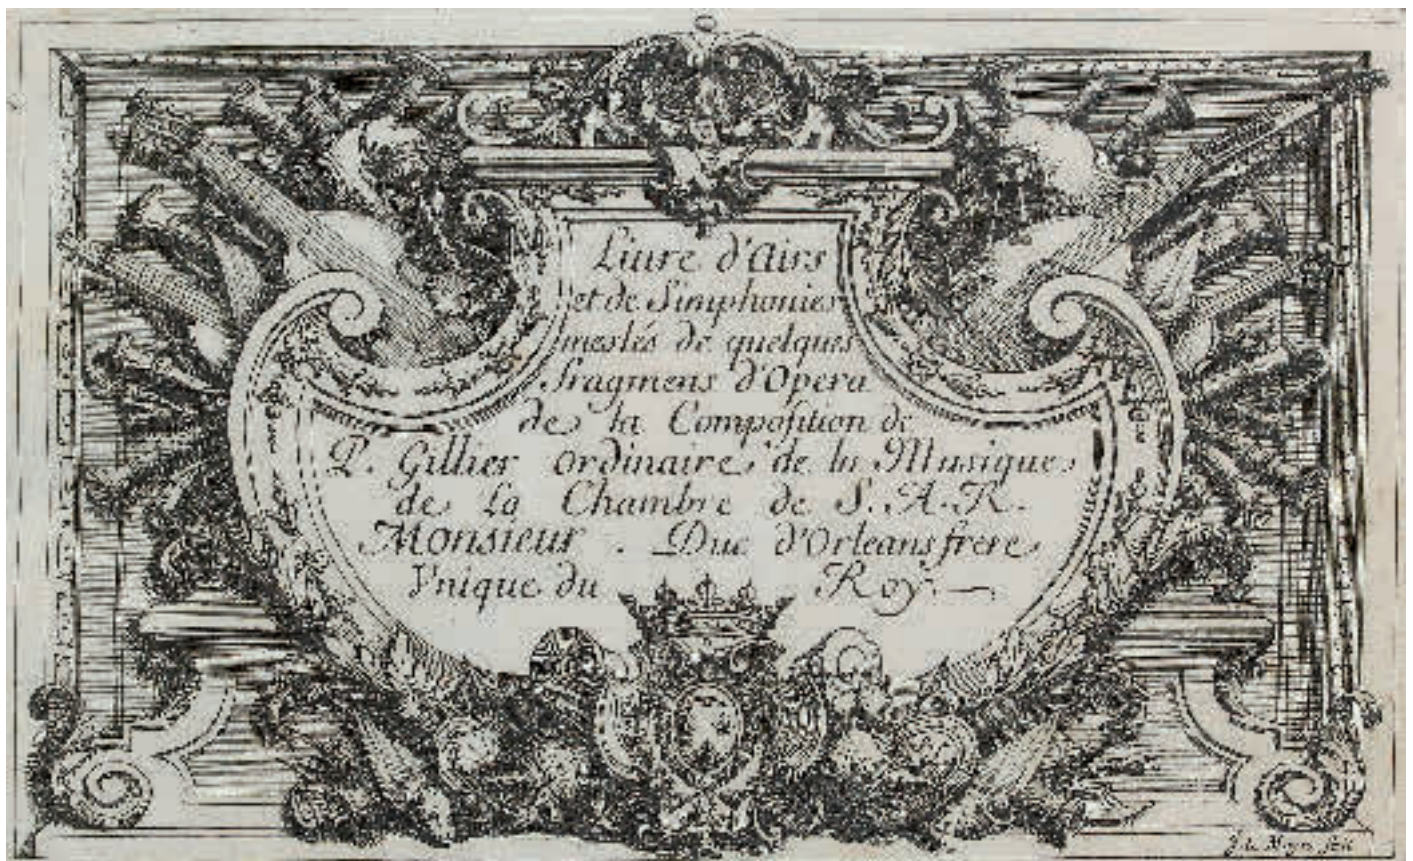 Liure d'Airs
et de Simphonies
meslés de quelques
fragmens d'Opera
de la Composition de
P. Gillier ordinaire de la Musique
de La Chambre de S. A. R.
Monsieur . Duc d'Orleans frere
Vnique du Roy.